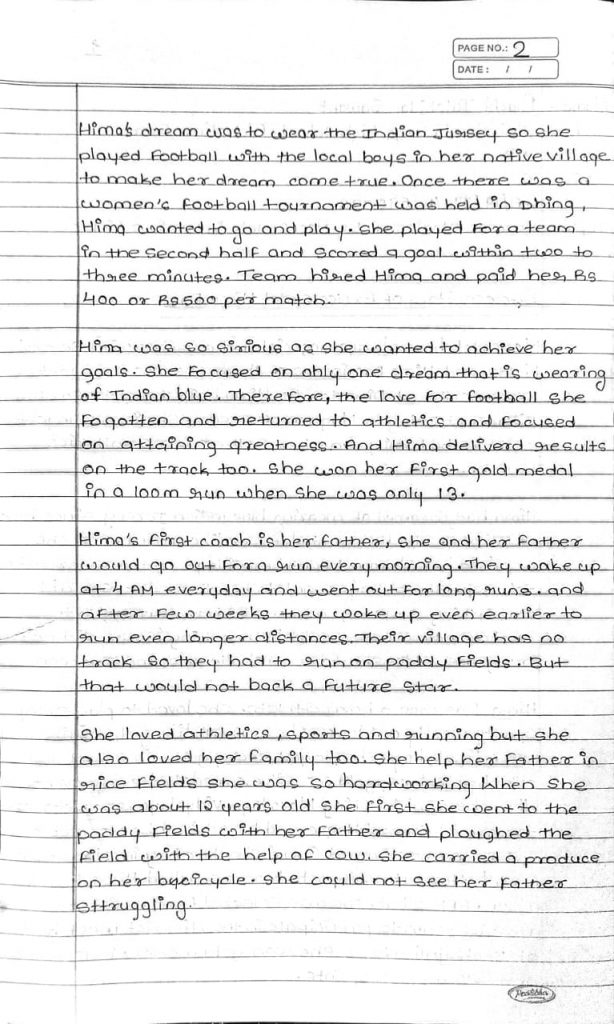 PAGE NO.: 2
DATE: / /
Hima's dream was to wear the Indian Jursey so she
played football with the local boys in her native village
to make her dream come true. Once there was a
women's football tournament was held in Dhing,
Hima wanted to go and play. She played for a team
in the second half and scored a goal within two to
three minutes. Team hired Hima and paid her, Rs
400 or Rs 500 per match.
Hima was so sirious as she wanted to achieve her
goals. She focused on only one dream that is wearing
of Indian blue. Therefore, the love for football she
fogotten and returned to athletics and focused
on attaining greatness. And Hima deliverd results
on the track too. She won her first gold medal
in a 100m run when she was only 13.
Hima's first coach is her father, she and her father
would go out for a run every morning. They woke up
at 4 AM everyday and went out for long runs. and
after few weeks they woke up even earlier to
run even longer distances. Their village has no
track so they had to run on paddy fields. But
that would not back a future star.
She loved athletics, sports and running but she
also loved her family too. She help her father in
rice fields she was so hardworking When she
was about 12 years old she first she went to the
paddy fields with her father and ploughed the
field with the help of cow. She carried a produce
on her bycicycle. She could not see her father
sttruggling.